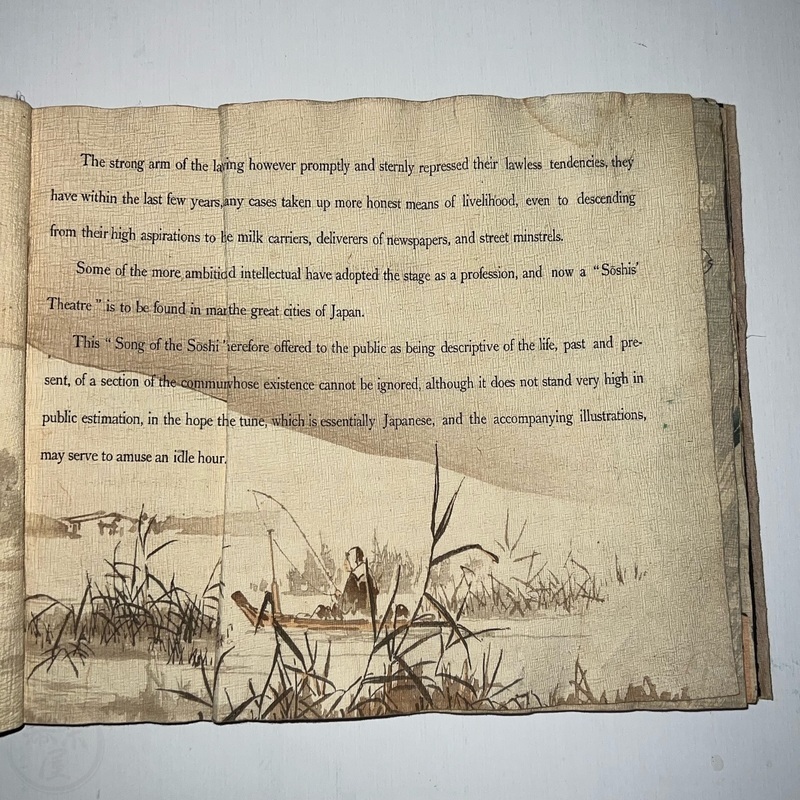 The strong arm of the la ving however promptly and sternly repressed their lawless tendencies, they
have within the last few years, any cases taken up more honest means of livelihood, even to descending
from their high aspirations to be milk carriers, deliverers of newspapers, and street minstrels.
Some of the more ambitio d intellectual have adopted the stage as a profession, and now a "Sōshis'
Theatre" is to be found in ma the great cities of Japan.
This "Song of the Sōshi" erefore offered to the public as being descriptive of the life, past and pre-
sent, of a section of the commun whose existence cannot be ignored, although it does not stand very high in
public estimation, in the hope the tune, which is essentially Japanese, and the accompanying illustrations,
may serve to amuse an idle hour.
屋